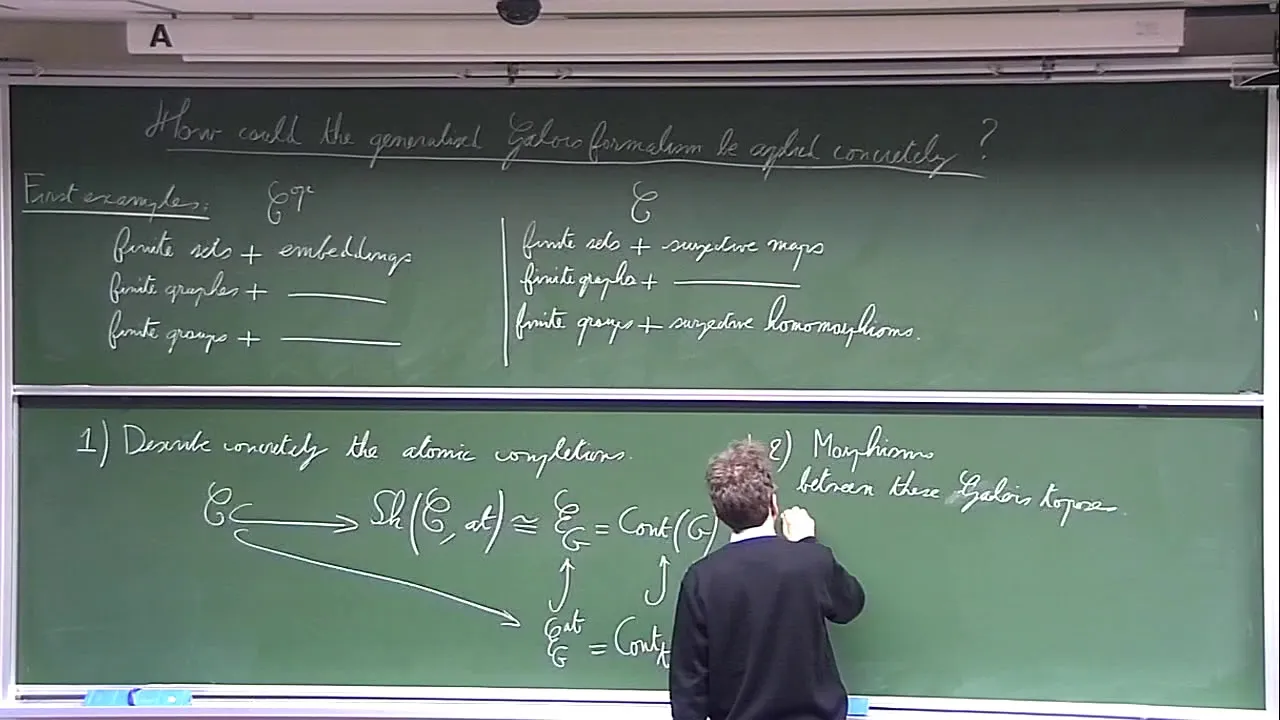 A
How could the generalised Galois formalism be applied concretely ?
First examples:
𝒞^op
finite sets + embeddings
finite graphes + ———
finite groups + ———
𝒞
finite sets + surjective maps
finite graphs + ———
finite groups + surjective homomorphisms.
1) Describe concretely the atomic completions.
𝒞 ↪ Sh(𝒞, at) ≅ ℰ_G = Cont(G)
ℰ_G^at = Cont_t
2) Morphisms
between these Galois toposes.